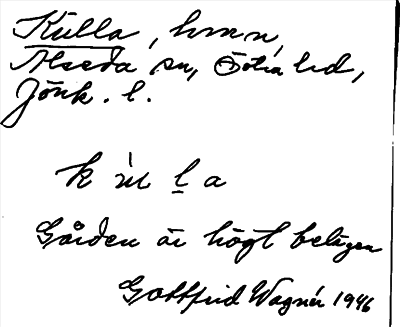 Kulla, hmn,
Alseda sn, Östra hd,
Jönk. l.
k u l a
Gården är högt belägen
Gottfrid Wagnér 1946